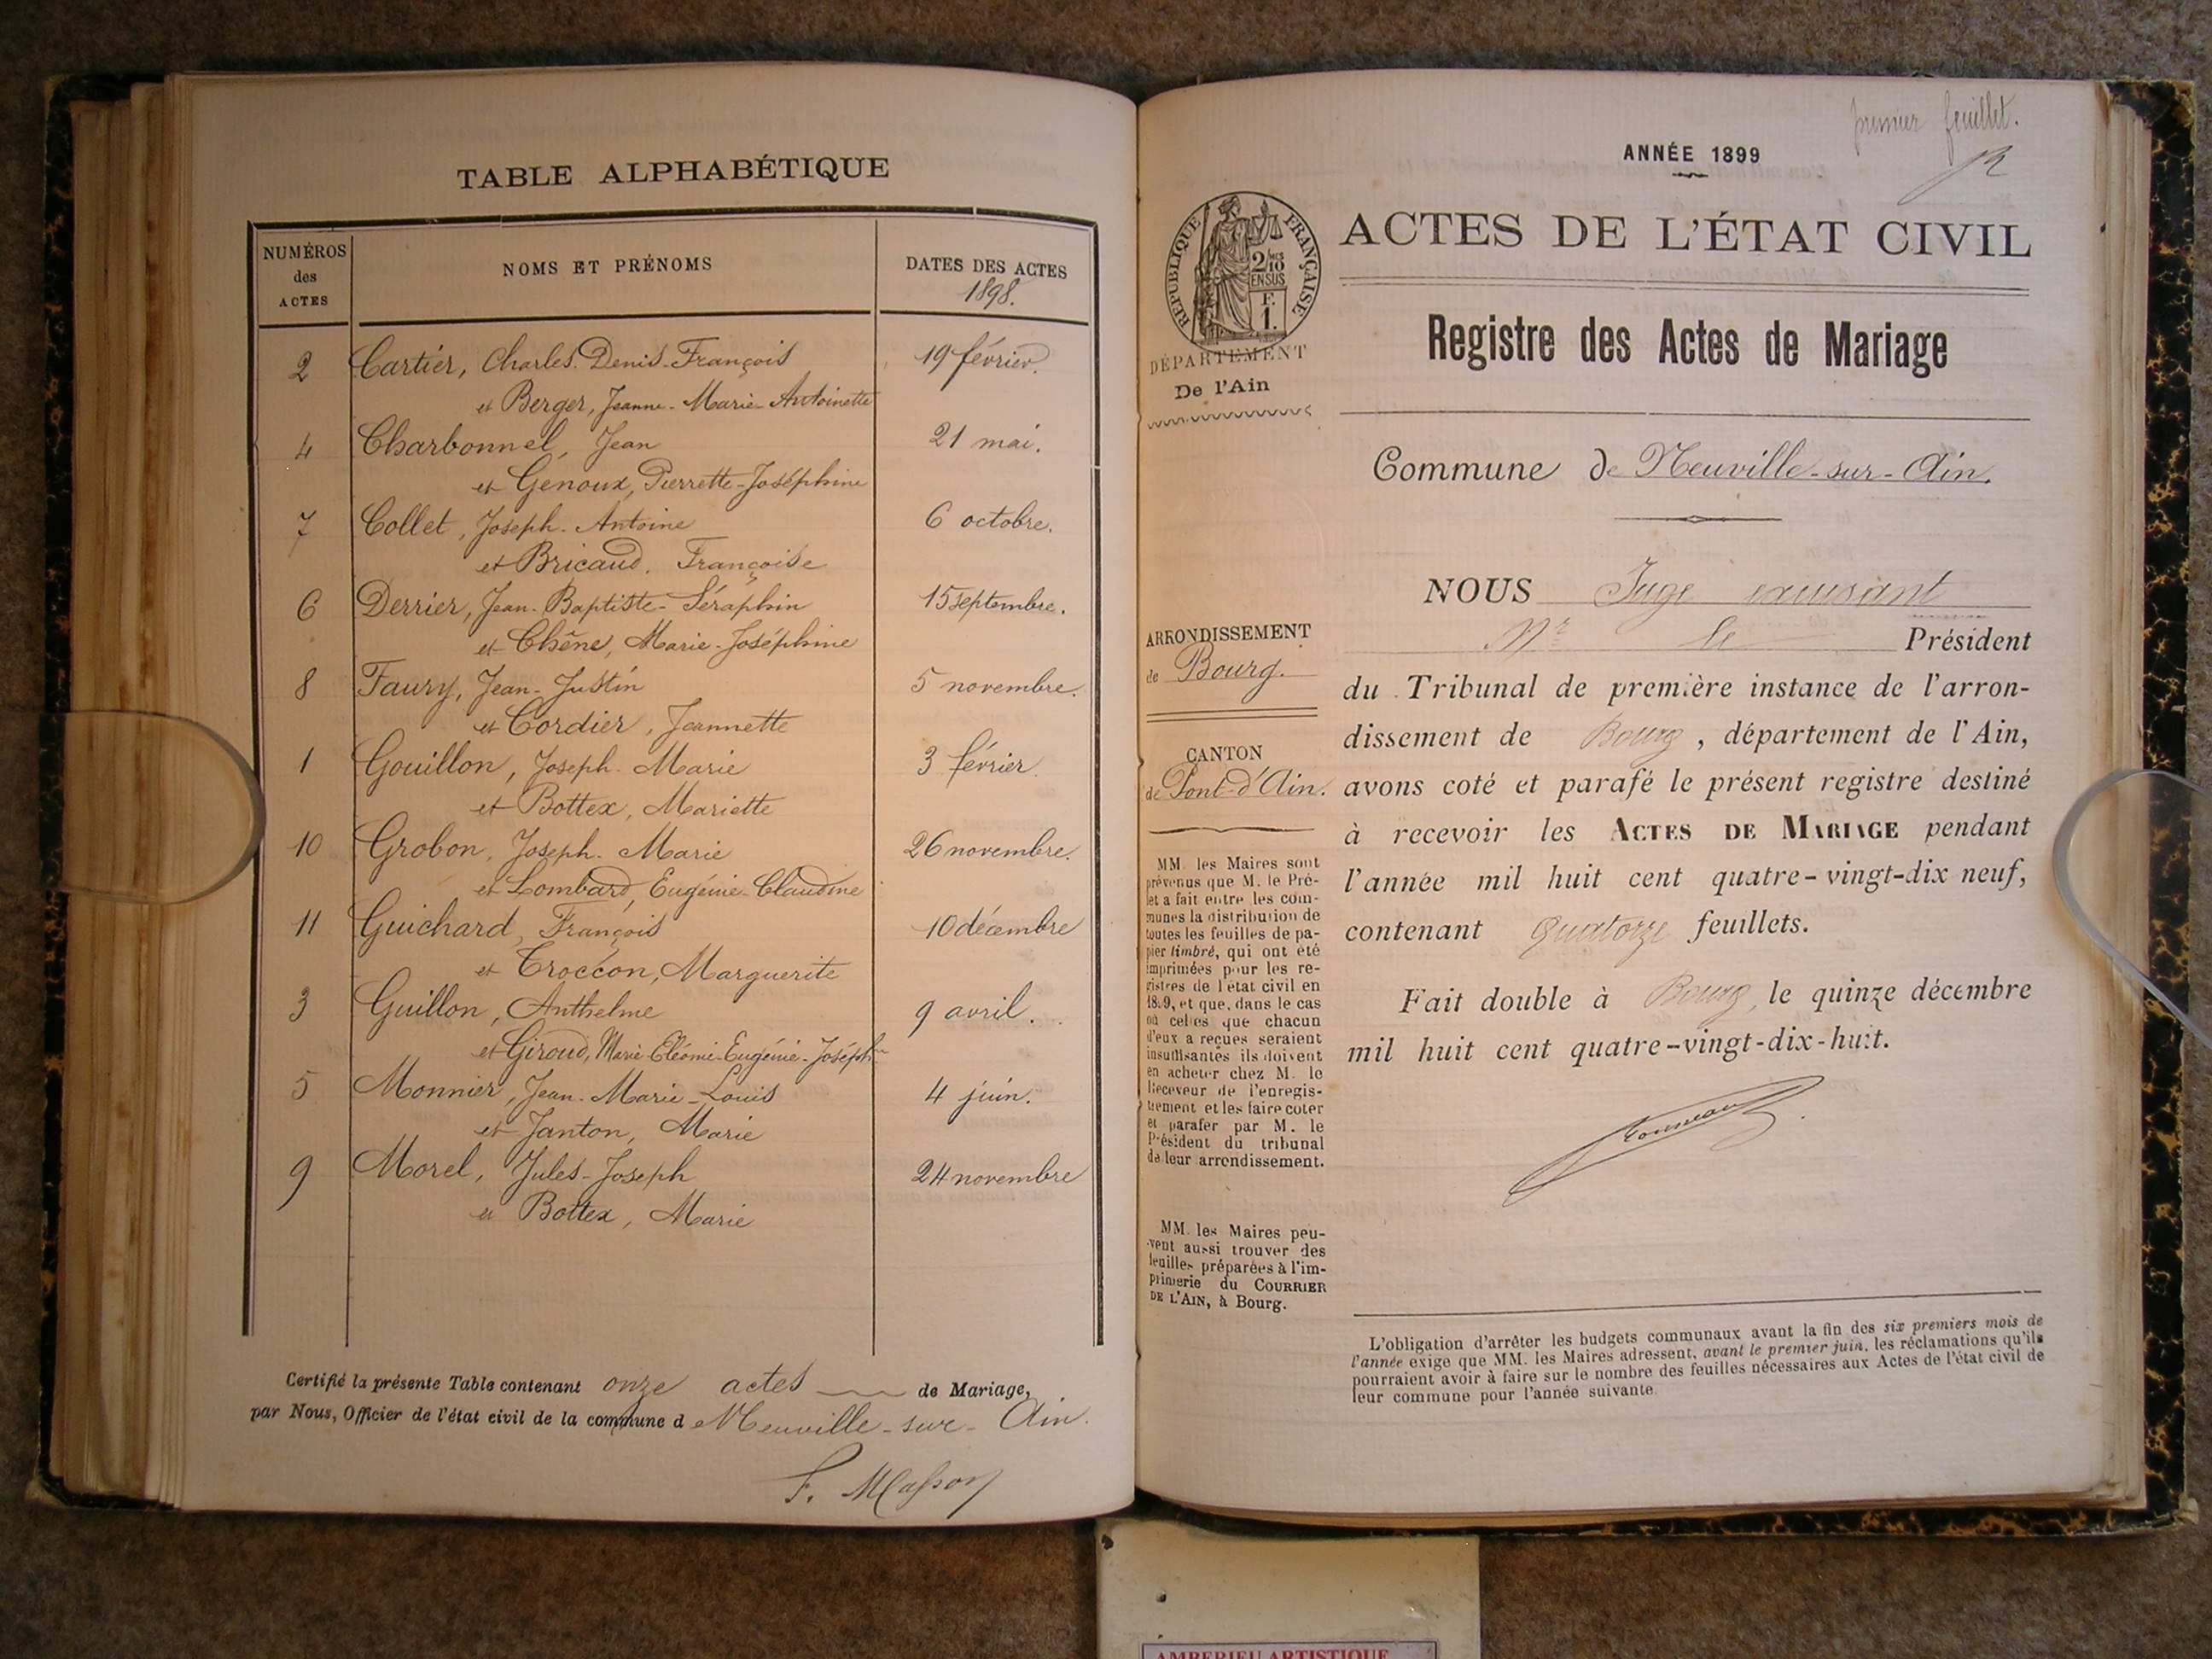 TABLE ALPHABÉTIQUE
NUMÉROS des ACTES
NOMS ET PRÉNOMS
DATES DES ACTES
1898.
2 Cartier, Charles-Denis-François 19 février.
et Berger, Jeanne-Marie-Antoinette
4 Charbonnel, Jean 21 mai.
et Genoux, Pierrette-Joséphine
7 Collet, Joseph-Antoine 6 octobre.
et Bricaud, Françoise
6 Derrier, Jean-Baptiste-Séraphin 15 septembre.
et Chêne, Marie-Joséphine
8 Faury, Jean-Justin 5 novembre.
et Cordier, Jeannette
1 Gouillon, Joseph-Marie 3 février.
et Bottex, Mariette
10 Grobon, Joseph-Marie 26 novembre.
et Lombard, Eugénie-Claudine
11 Guichard, François 10 décembre
et Troccon, Marguerite
3 Guillon, Anthelme 9 avril.
et Giroud, Marie-Cléonie-Eugénie-Joséph
5 Monnier, Jean-Marie-Louis 4 juin.
et Janton, Marie
9 Morel, Jules-Joseph 24 novembre
et Bottex, Marie
Certifié la présente Table contenant onze actes de Mariage,
par Nous, Officier de l'état civil de la commune de Neuville-sur-Ain.
F. Masson
premier feuillet.
ANNÉE 1899
RÉPUBLIQUE FRANÇAISE
2/10
EN SUS
F.
1.
DÉPARTEMENT
De l'Ain
ACTES DE L'ÉTAT CIVIL
Registre des Actes de Mariage
Commune de Neuville-sur-Ain.
ARRONDISSEMENT
de Bourg.
CANTON
de Pont-d'Ain.
MM. les Maires sont
prévenus que M. le Pré-
fet a fait entre les com-
munes la distribution de
toutes les feuilles de pa-
pier timbré, qui ont été
imprimées pour les re-
gistres de l'état civil en
1899, et que, dans le cas
où celles que chacun
d'eux a reçues seraient
insuffisantes ils doivent
en acheter chez M. le
Receveur de l'enregis-
trement et les faire coter
et parafer par M. le
Président du tribunal
de leur arrondissement.
MM. les Maires peu-
vent aussi trouver des
feuilles préparées à l'im-
primerie du COURRIER
DE L'AIN, à Bourg.
NOUS Juge
Mr le Président
du Tribunal de première instance de l'arron-
dissement de Bourg, département de l'Ain,
avons coté et parafé le présent registre destiné
à recevoir les ACTES DE MARIAGE pendant
l'année mil huit cent quatre-vingt-dix neuf,
contenant quatorze feuillets.
Fait double à Bourg, le quinze décembre
mil huit cent quatre-vingt-dix-huit.
L'obligation d'arrêter les budgets communaux avant la fin des six premiers mois de
l'année exige que MM. les Maires adressent, avant le premier juin, les réclamations qu'ils
pourraient avoir à faire sur le nombre des feuilles nécessaires aux Actes de l'état civil de
leur commune pour l'année suivante.
AMBERIEU ARTISTIQUE